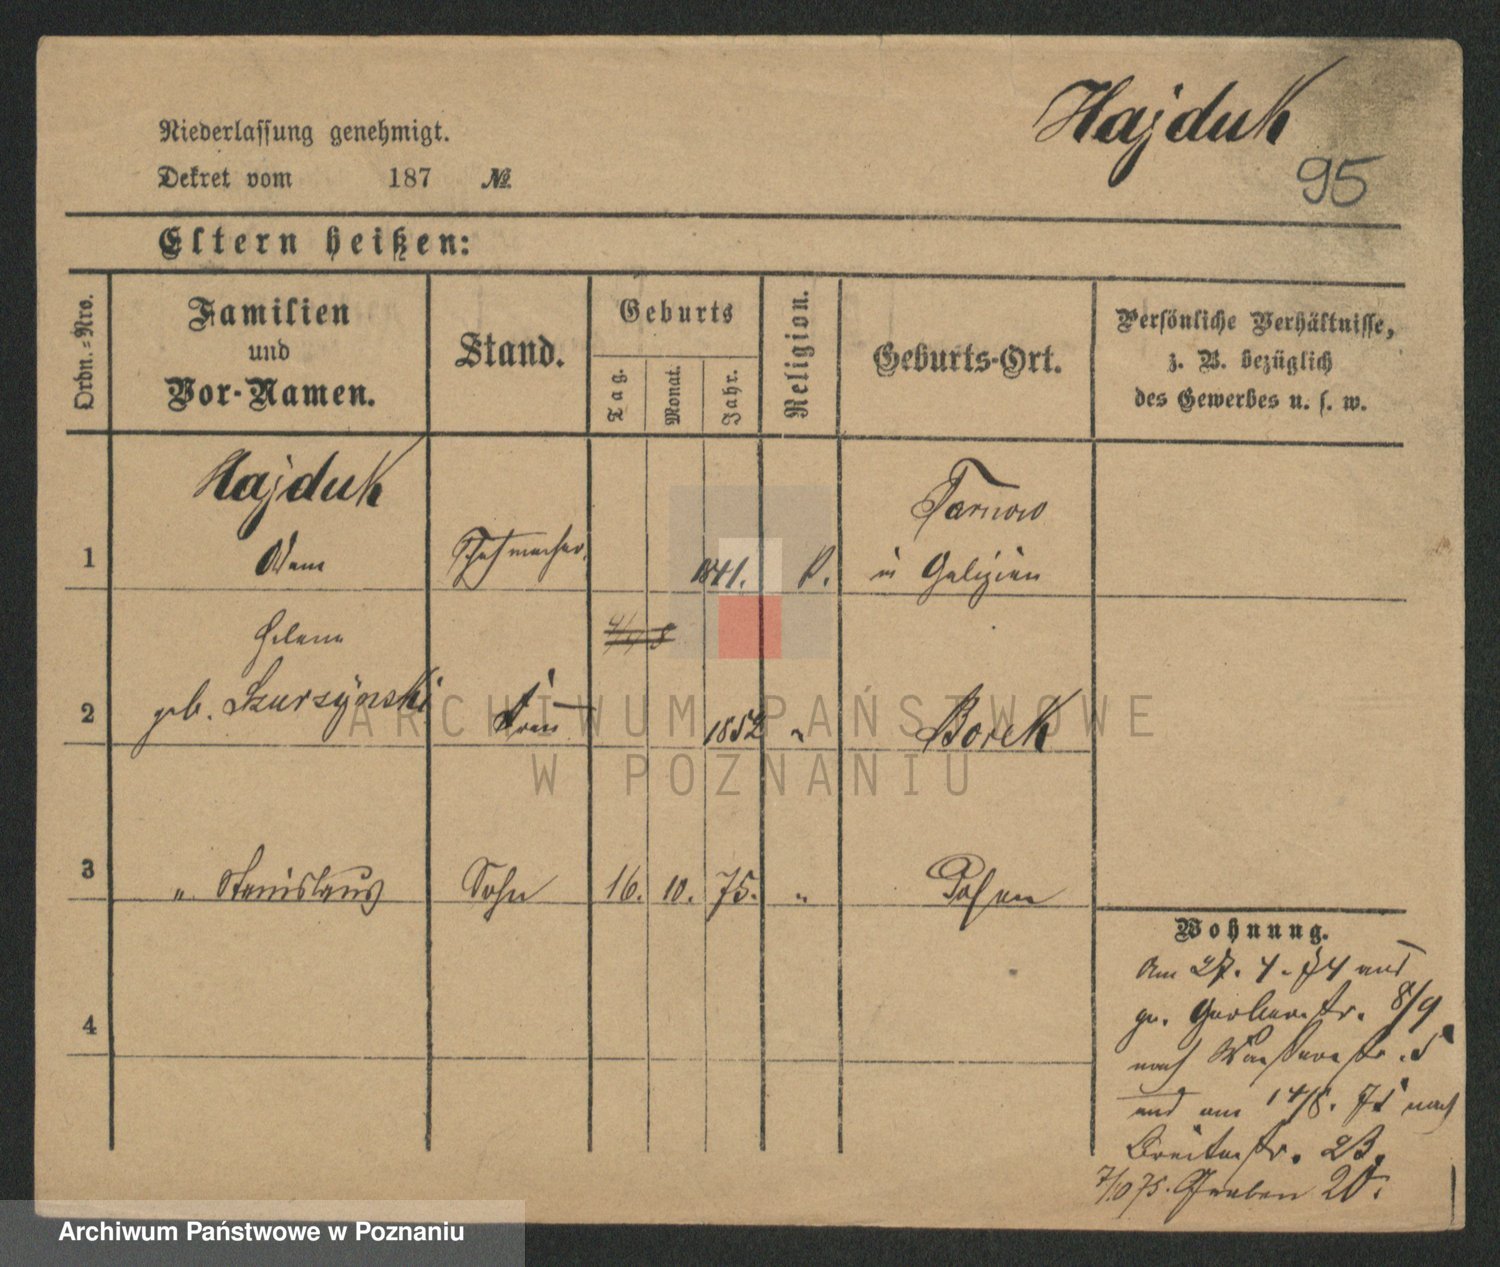 Hajduk
95
Niederlassung genehmigt.
Dekret vom 187 №
Eltern heißen:
Ordn.=Nro.
Familien
und
Vor-Namen.
Stand.
Geburts
Tag.
Monat.
Jahr.
Religion.
Geburts-Ort.
Persönliche Verhältnisse,
z. B. bezüglich
des Gewerbes u. s. w.
Hajduk
1 Adam 1841. in Galizien
Tarnow
Helene
2 geb. Szurzynski Frau 1852 " Borek
3 " Stanislaus Sohn 16. 10. 75. " Posen
4
Wohnung.
Am 27. 4. 74 aus
gr. Gerberstr. 8/9
nach Wasserstr. 5
und am 14/8. 75 nach
Breitestr. 23.
7/10 75. Graben 20.
ARCHIWUM PAŃSTWOWE
W POZNANIU
Archiwum Państwowe w Poznaniu